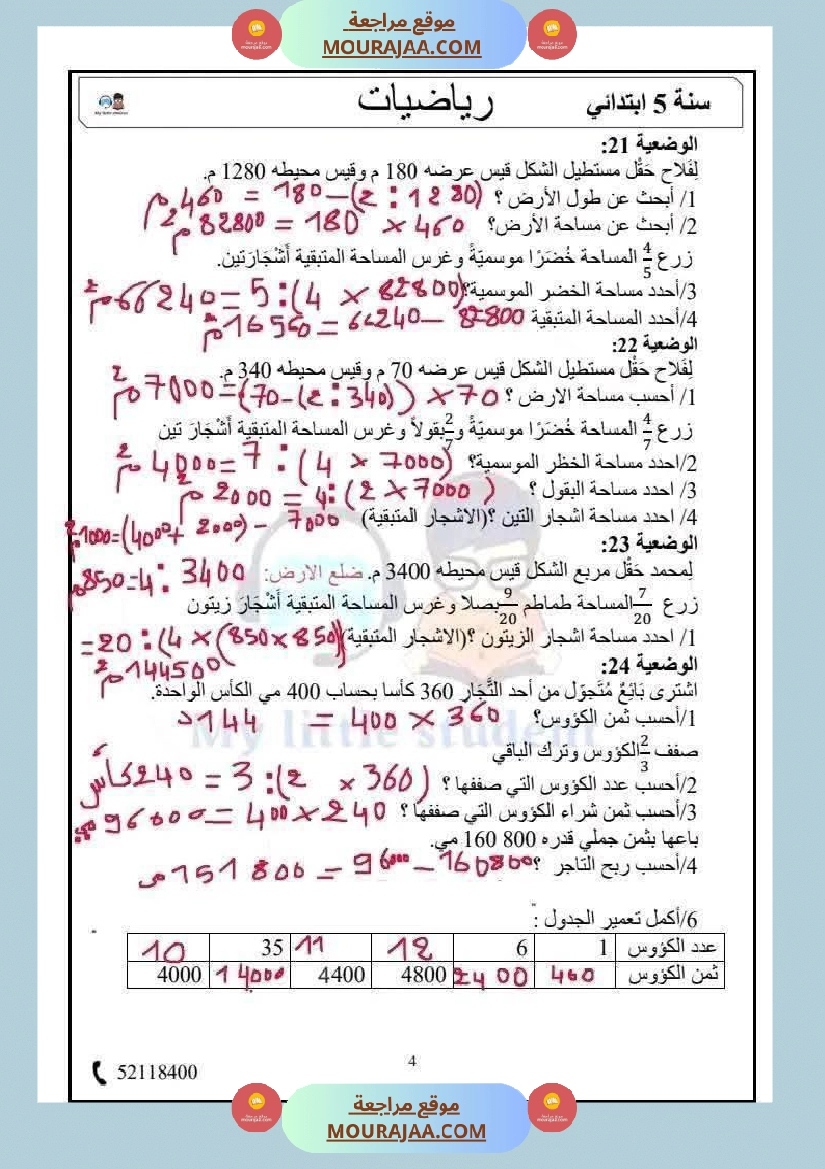 موقع مراجعة
MOURAJAA.COM
سنة 5 ابتدائي
رياضيات
الوضعية 21:
لِفَلاح حَقْل مستطيل الشكل قيس عرضه 180 م وقيس محيطه 1280 م.
1/ أبحث عن طول الأرض ؟ (1280 : 2) – 180 = 460 م
2/ أبحث عن مساحة الأرض؟ 460 × 180 = 82800 م2
زرع 4/5 المساحة خُضَرًا موسميّةً وغرس المساحة المتبقية أَشْجَارَتين.
3/أحدد مساحة الخضر الموسمية؟ (82800 × 4) : 5 = 66240 م2
4/أحدد المساحة المتبقية 82800 – 66240 = 16560 م2
الوضعية 22:
لِفَلاح حَقْل مستطيل الشكل قيس عرضه 70 م وقيس محيطه 340 م.
1/ أحسب مساحة الارض ؟ 70 × ((340 : 2) – 70) = 7000 م2
زرع 4/7 المساحة خُضَرًا موسميّةً و2/7 بقولاً وغرس المساحة المتبقية أَشْجَارَ تين
2/احدد مساحة الخظر الموسمية؟ (7000 × 4) : 7 = 4000 م2
3/ احدد مساحة البقول ؟ (7000 × 2) : 4 = 2000 م2
4/ احدد مساحة اشجار التين ؟(الاشجار المتبقية) 7000 – (2000 + 4000) = 1000 م2
الوضعية 23:
لِمحمد حَقْل مربع الشكل قيس محيطه 3400 م. ضلع الارض: 3400 : 4 = 850 م
زرع 7/20 المساحة طماطم 9/20 بصلا وغرس المساحة المتبقية أَشْجَارَ زيتون
1/ احدد مساحة اشجار الزيتون ؟(الاشجار المتبقية) ((850 × 850) × 4) : 20 =
144500 م2
الوضعية 24:
اشترى بَائِعٌ مُتَجوّل من أحد التُّجَار 360 كأسا بحساب 400 مي الكأس الواحدة.
1/أحسب ثمن الكؤوس؟ 360 × 400 = 144 د
صفف 2/3 الكؤوس وترك الباقي
2/أحسب عدد الكؤوس التي صففها ؟ (360 × 2) : 3 = 240 كأس
3/أحسب ثمن شراء الكؤوس التي صففها ؟ 240 × 400 = 96000 مي
باعها بثمن جملي قدره 800 160 مي.
4/أحسب ربح التاجر ؟ 160800 – 9600 = 151800 مي
6/أكمل تعمير الجدول :
عدد الكؤوس 1 6 12 11 35 10
ثمن الكؤوس 400 2400 4800 4400 14000 4000
4
52118400
موقع مراجعة
MOURAJAA.COM